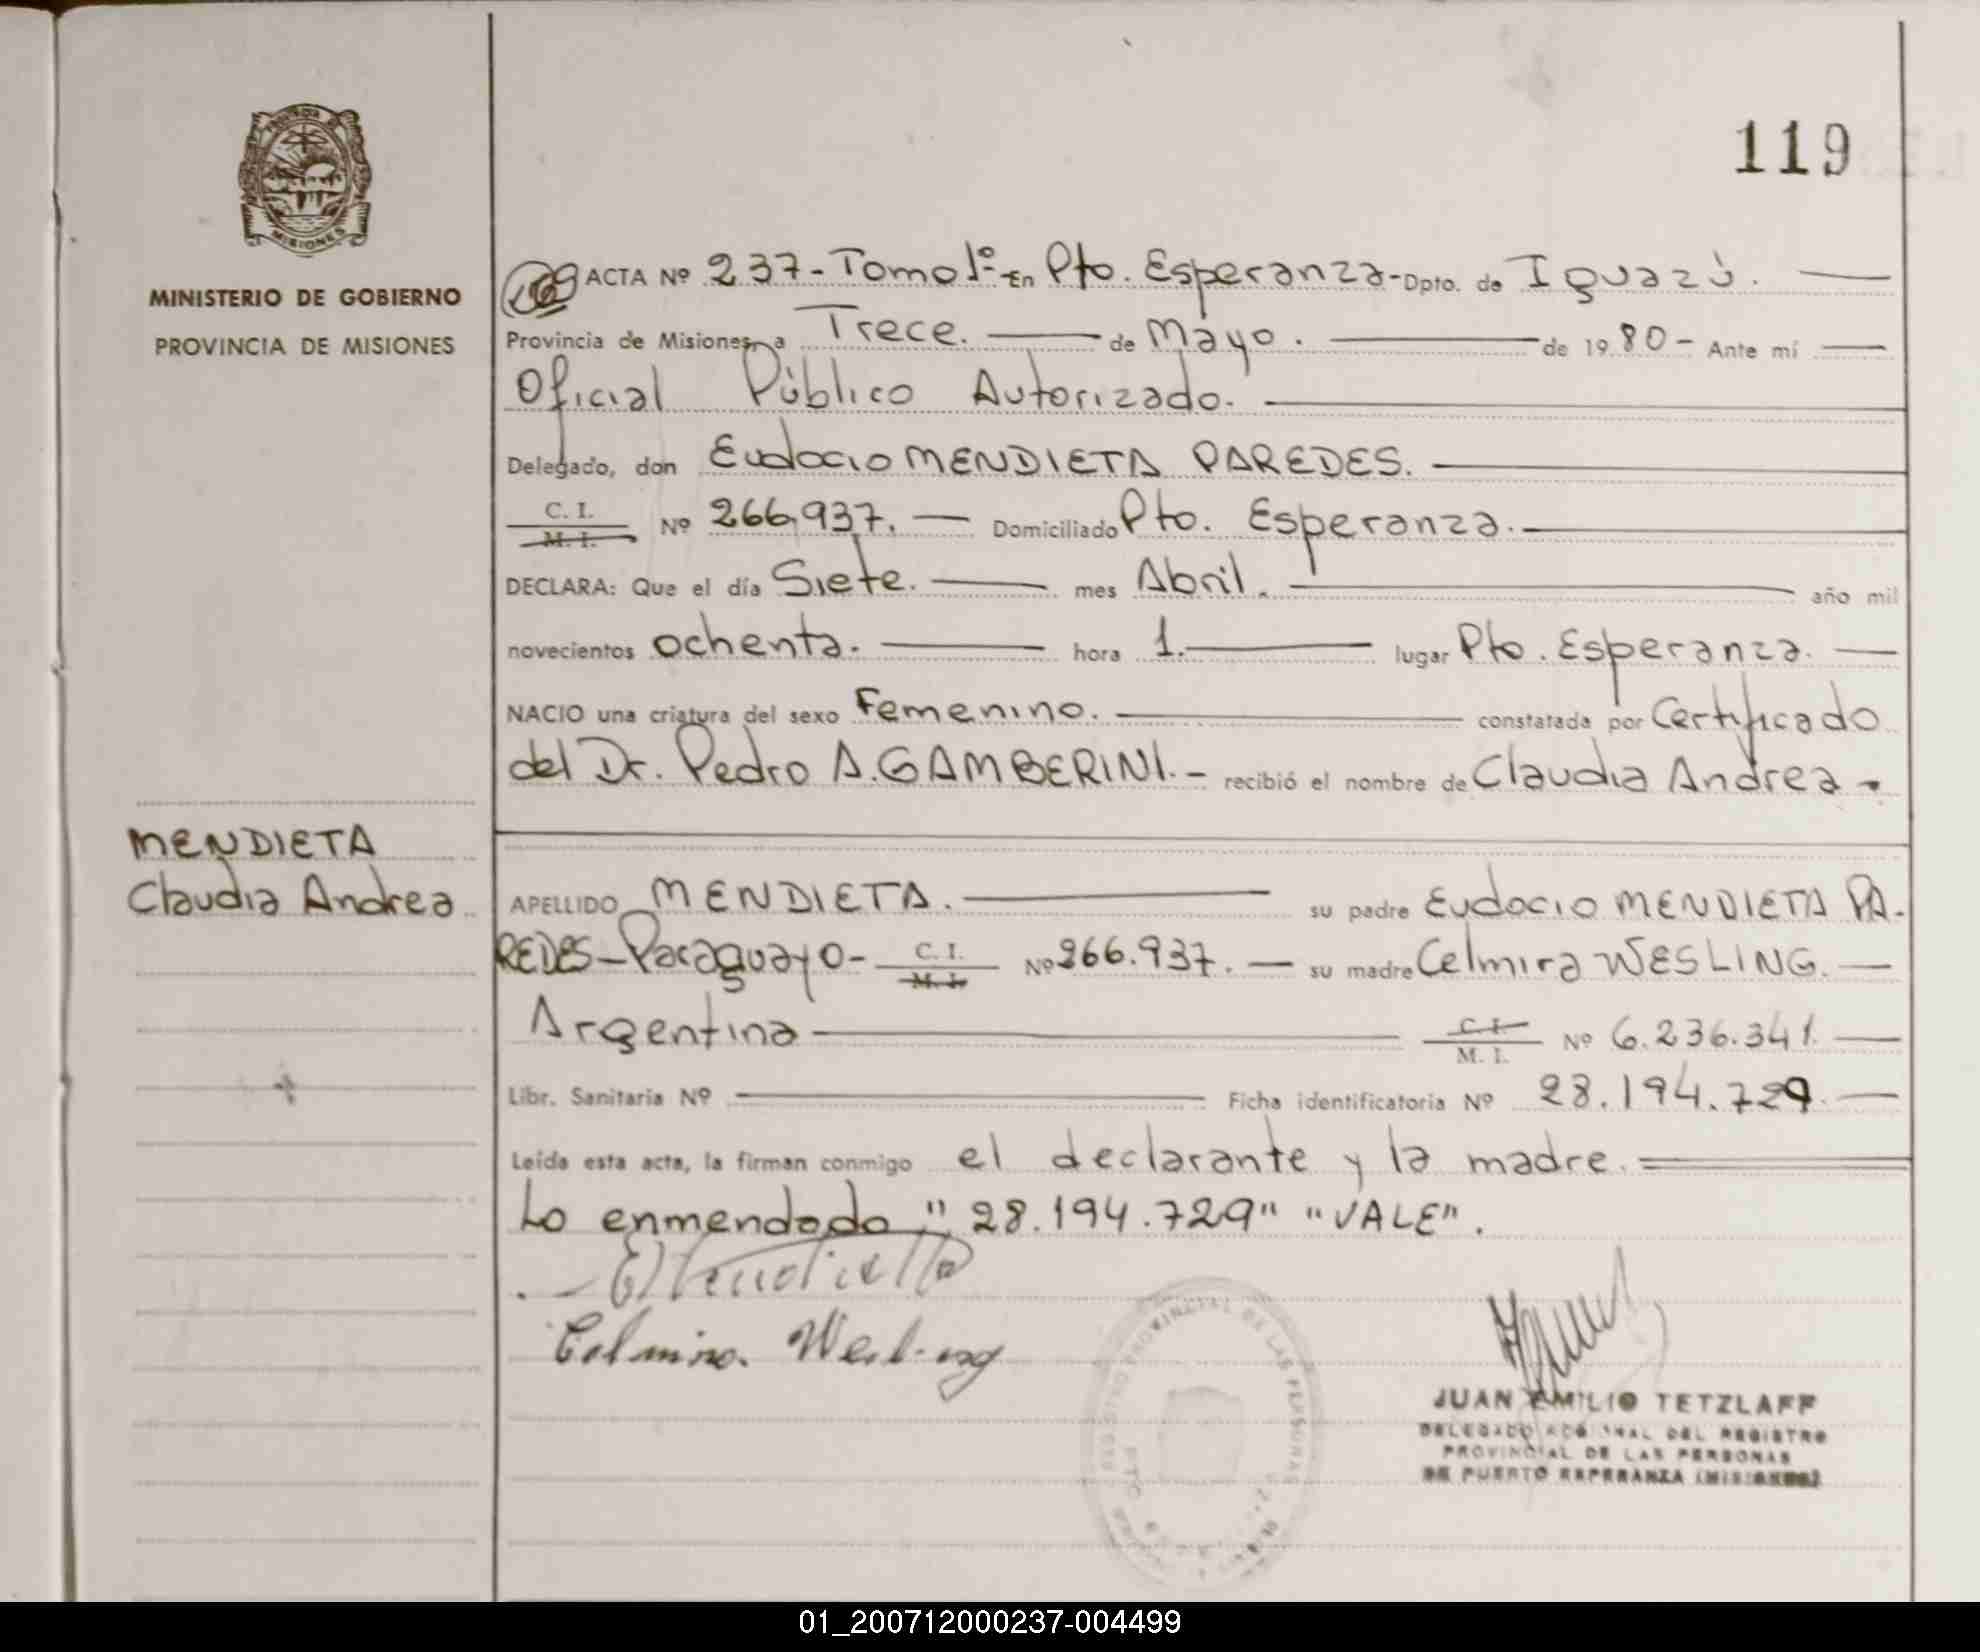 119
MINISTERIO DE GOBIERNO
PROVINCIA DE MISIONES
MISIONES
ACTA Nº 237-Tomo 1º- En Pto. Esperanza- Dpto. de Iguazú.
Provincia de Misiones, a Trece. de Mayo. de 1980- Ante mí
Oficial Público Autorizado.
Delegado, don Eudocio MENDIETA PAREDES.
C. I.
M. I. Nº 266.937. Domiciliado Pto. Esperanza.
DECLARA: Que el día Siete. mes Abril. año mil
novecientos ochenta. hora 1. lugar Pto. Esperanza.
NACIO una criatura del sexo Femenino. constatada por Certificado
del Dr. Pedro A. GAMBERINI.- recibió el nombre de Claudia Andrea-
MENDIETA
Claudia Andrea
APELLIDO MENDIETA. su padre Eudocio MENDIETA PA-
REDES-Paraguayo- C. I. M. I. Nº 266.937. su madre Celmira WESLING.
Argentina C. I. M. I. Nº 6.236.341.
Libr. Sanitaria Nº Ficha identificatoria Nº 28.194.729.
Leída esta acta, la firman conmigo el declarante y la madre.
Lo enmendado "28.194.729" "VALE".
Celmira Wesling
REGISTRO PROVINCIAL DE LAS PERSONAS
JUAN EMILIO TETZLAFF
DELEGADO REGIONAL DEL REGISTRO
PROVINCIAL DE LAS PERSONAS
DE PUERTO ESPERANZA (MISIONES)
01_200712000237-004499